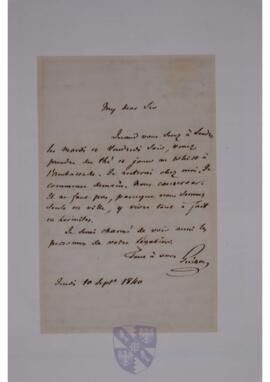 My dear Sir
Quand vous serez à Londres
les mardi et vendredi soir, venez
prendre du thé et jouer au whist à
l'ambassade. Je resterai chez moi, Je
commence demain. Nous causerons.
Il ne faut pas, parceque nous sommes
seuls en ville, y vivre tout à fait
en hermites.
Je serai charmé de voir aussi les
personnes de votre légation.
Tout à vous
Guizot
Jeudi 10 Sept. 1840